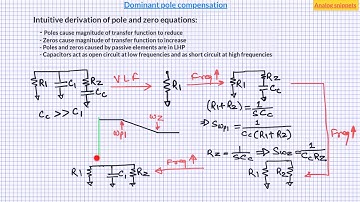 Dominant pole compensation
Analog snippets
Intuitive derivation of pole and zero equations:
- Poles cause magnitude of transfer function to reduce
- Zeros cause magnitude of transfer function to increase
- Poles and zeros caused by passive elements are in LHP
- Capacitors act as open circuit at low frequencies and as short circuit at high frequencies
R1 C1 R2 CC
VLF
R1
Freq↑
R1 R2 CC
Freq↑
CC >> C1
(R1+R2) = 1/SCC
⇒ Sωp1 = 1/CC(R1+R2)
ωp1 ωz
R2 = 1/SCC ⇒ Sωz = 1/CCR2
R1 C1 R2
Freq↑
R1 R2